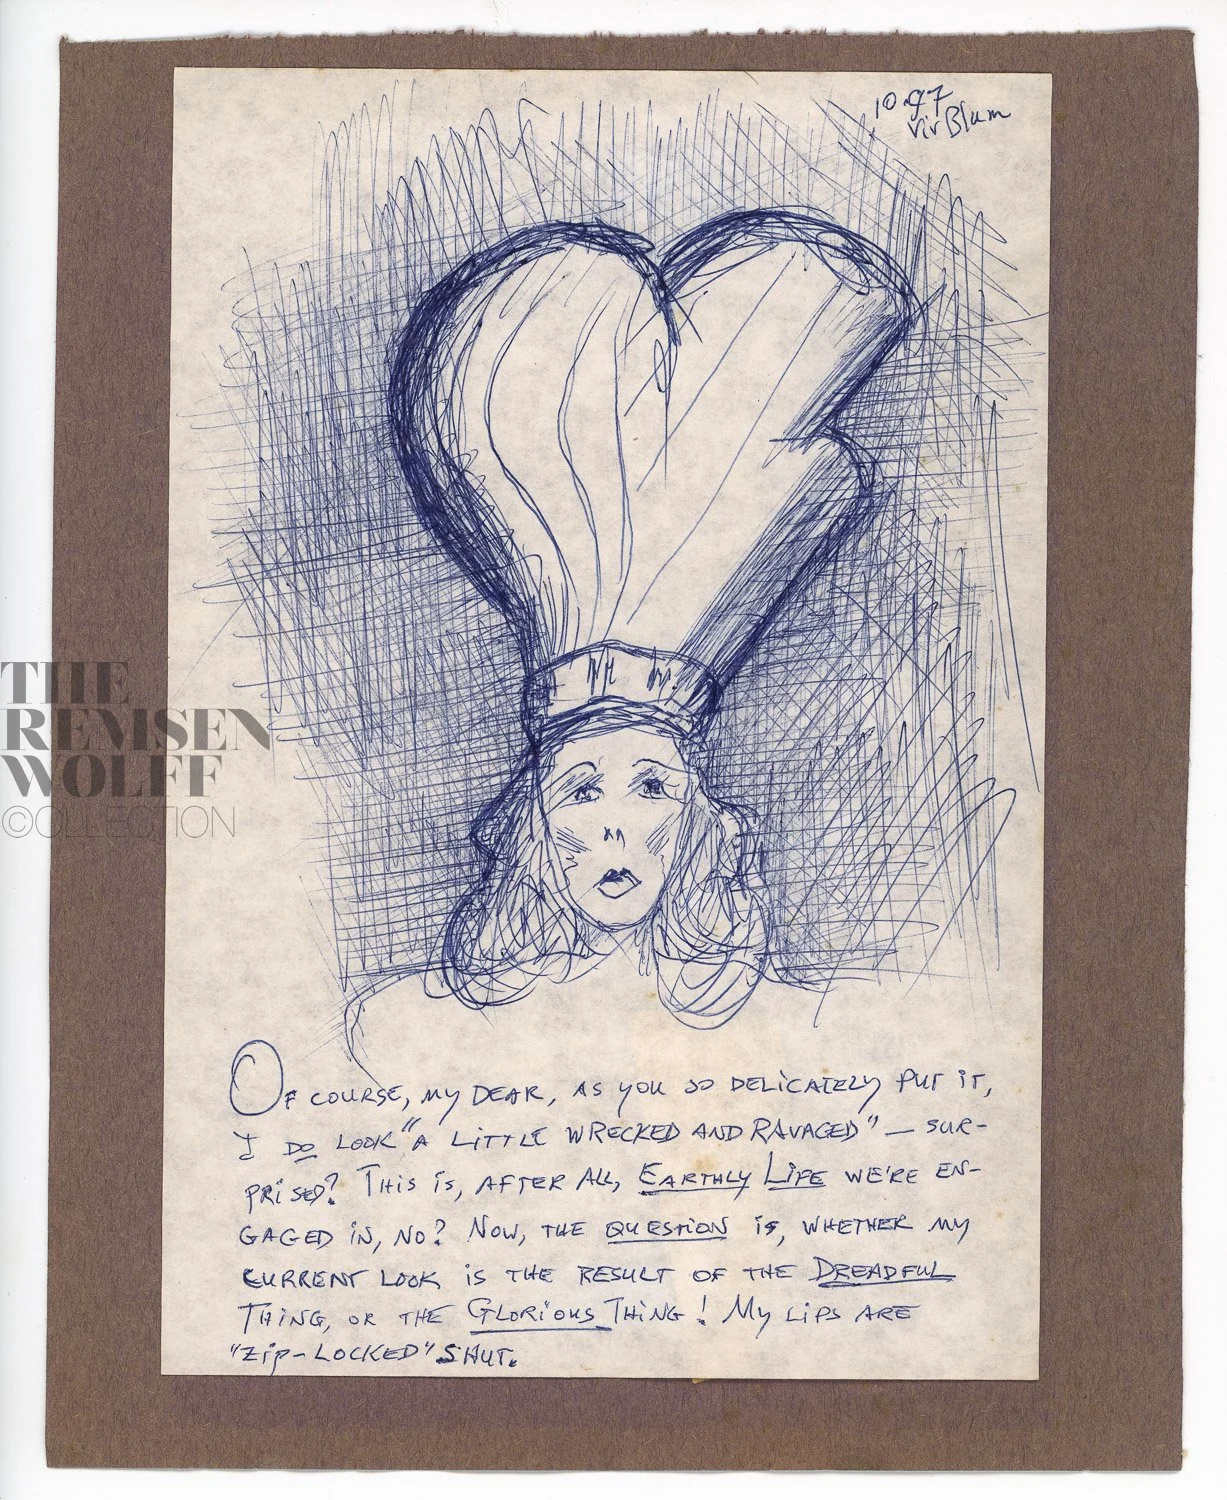 10.97
Viv Blum
THE
REMSEN
WOLFF
©OLLECTION
OF COURSE, MY DEAR, AS YOU SO DELICATELY PUT IT,
I DO LOOK "A LITTLE WRECKED AND RAVAGED" — SUR-
PRISED? THIS IS, AFTER ALL, EARTHLY LIFE WE'RE EN-
GAGED IN, NO? NOW, THE QUESTION IS, WHETHER MY
CURRENT LOOK IS THE RESULT OF THE DREADFUL
THING, OR THE GLORIOUS THING! MY LIPS ARE
"ZIP-LOCKED" SHUT.